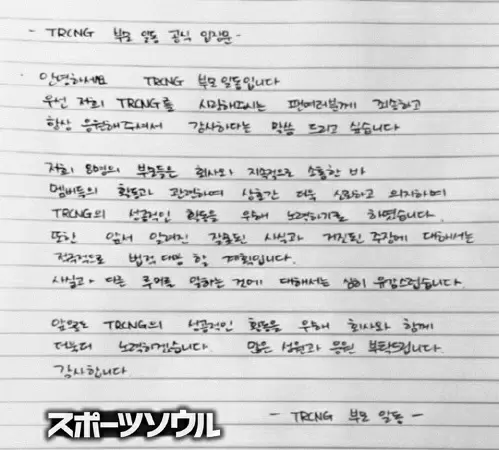 - TRCNG 부모 일동 공식 입장문 -
안녕하세요 TRCNG 부모 일동입니다
우선 저희 TRCNG를 사랑해주시는 팬여러분께 죄송하고
항상 응원해주셔서 감사하다는 말씀 드리고 싶습니다
저희 8명의 부모들은 회사와 지속적으로 소통한 바
멤버들의 활동과 관련하여 상호간 더욱 신뢰하고 의지하며
TRCNG의 성공적인 활동을 위해 노력하기로 하였습니다.
또한 앞서 알려진 잘못된 사실과 거짓된 주장에 대해서는
적극적으로 법적 대응 할 계획입니다.
사실과 다른 루머를 말하는 것에 대해서는 심히 유감스럽습니다.
앞으로 TRCNG의 성공적인 활동을 위해 회사와 함께
더욱더 노력하겠습니다. 많은 성원과 응원 부탁드립니다.
감사합니다.
- TRCNG 부모 일동 -
スポーツソウル